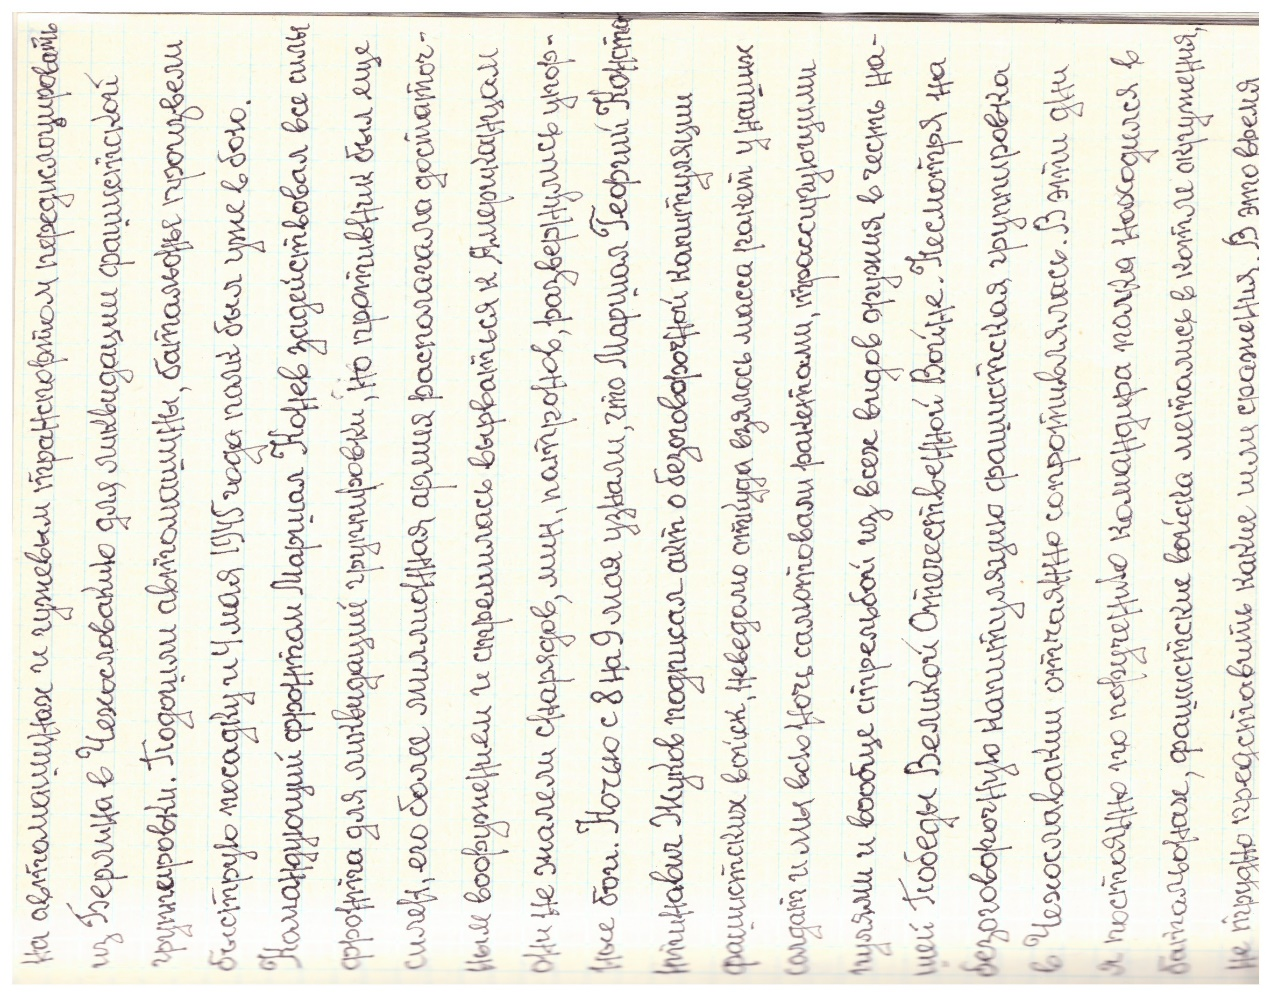 на автомашинах и гужевым транспортом передислоцировать
из Берлина в Чехословакию для ликвидации фашистской
группировки. Подошли автомашины, батальоны произвели
быструю посадку и 4 мая 1945 года полк был уже в бою.
Командующий фронтом Маршал Конев задействовал все силы
фронта для ликвидаций группировки, но противник был еще
силен, его более миллионная армия располагала достаточ-
ным вооружением и стремилась вырваться к Американцам
они не жалели снарядов, мин, патронов, развернулись упор-
ные бои. Ночью с 8 на 9 мая узнали, что Маршал Георгий Конста
нтинович Жуков подписал акт о безоговорочной капитуляции
фашистских войск, неведомо откуда взялось масса ракет у наших
солдат и мы всю ночь салютовали ракетами, трассирующими
пулями и вообще стрельбой из всех видов оружия в честь на-
шей Победы Великой Отечественной Войне. Несмотря на
безоговорочную капитуляцию фашистская группировка
в Чехославакии отчаянно сопротивлялась. В эти дни
я постоянно по поручению командира полка находился в
батальонах, фашистские войска метались в котле окружения,
не трудно представить какие шли сражения. В это время